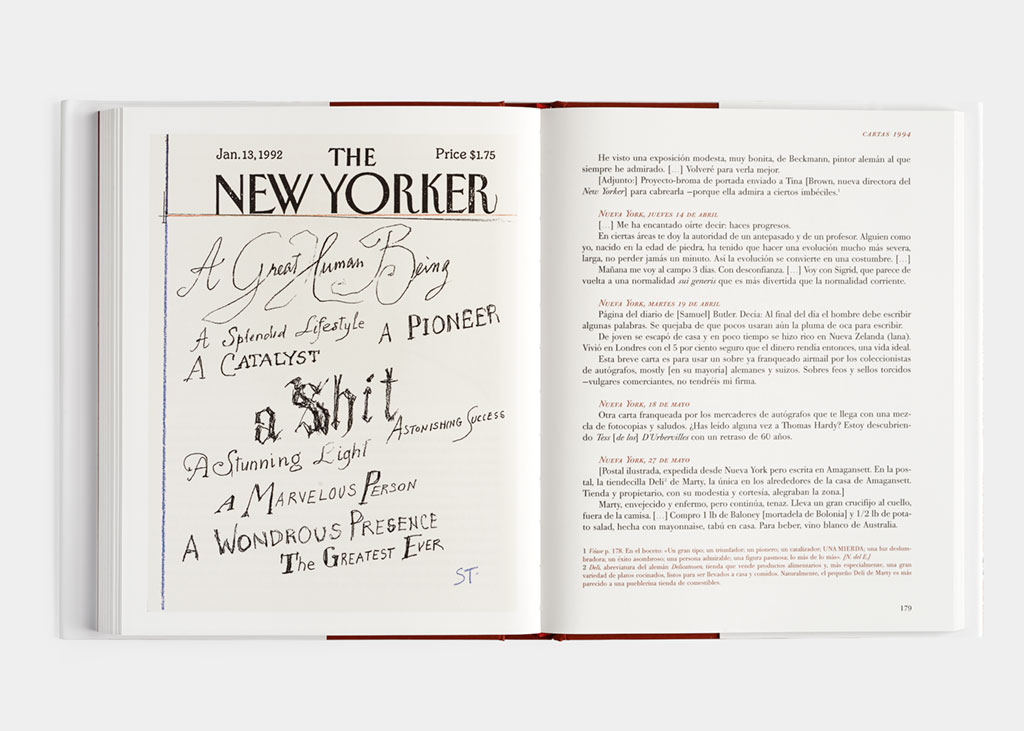 Jan. 13, 1992
THE
Price $1.75
NEW YORKER
A Great Human Being
A Splendid Lifestyle
A PIONEER
A CATALYST
a Shit
ASTONISHING SUCCESS
A Stunning Light
A MARVELOUS PERSON
A WONDROUS PRESENCE
THE GREATEST EVER
ST.
CARTAS 1994
He visto una exposición modesta, muy bonita, de Beckmann, pintor alemán al que
siempre he admirado. […] Volveré para verla mejor.
[Adjunto:] Proyecto-broma de portada enviado a Tina [Brown, nueva directora del
New Yorker] para cabrearla –porque ella admira a ciertos imbéciles.¹
NUEVA YORK, JUEVES 14 DE ABRIL
[…] Me ha encantado oírte decir: haces progresos.
En ciertas áreas te doy la autoridad de un antepasado y de un profesor. Alguien como
yo, nacido en la edad de piedra, ha tenido que hacer una evolución mucho más severa,
larga, no perder jamás un minuto. Así la evolución se convierte en una costumbre. […]
Mañana me voy al campo 3 días. Con desconfianza. […] Voy con Sigrid, que parece de
vuelta a una normalidad sui generis que es más divertida que la normalidad corriente.
NUEVA YORK, MARTES 19 DE ABRIL
Página del diario de [Samuel] Butler. Decía: Al final del día el hombre debe escribir
algunas palabras. Se quejaba de que pocos usaran aún la pluma de oca para escribir.
De joven se escapó de casa y en poco tiempo se hizo rico en Nueva Zelanda (lana).
Vivió en Londres con el 5 por ciento seguro que el dinero rendía entonces, una vida ideal.
Esta breve carta es para usar un sobre ya franqueado airmail por los coleccionistas
de autógrafos, mostly [en su mayoría] alemanes y suizos. Sobres feos y sellos torcidos
–vulgares comerciantes, no tendréis mi firma.
NUEVA YORK, 18 DE MAYO
Otra carta franqueada por los mercaderes de autógrafos que te llega con una mez-
cla de fotocopias y saludos. ¿Has leído alguna vez a Thomas Hardy? Estoy descubrien-
do Tess [de los] D'Urbervilles con un retraso de 60 años.
NUEVA YORK, 27 DE MAYO
[Postal ilustrada, expedida desde Nueva York pero escrita en Amagansett. En la pos-
tal, la tiendecilla Deli² de Marty, la única en los alrededores de la casa de Amagansett.
Tienda y propietario, con su modestia y cortesía, alegraban la zona.]
Marty, envejecido y enfermo, pero continúa, tenaz. Lleva un gran crucifijo al cuello,
fuera de la camisa. […] Compro 1 lb de Baloney [mortadela de Bolonia] y 1/2 lb de pota-
to salad, hecha con mayonnaise, tabú en casa. Para beber, vino blanco de Australia.
1 Véase p. 178. En el boceto: «Un gran tipo; un triunfador, un pionero; un catalizador; UNA MIERDA; una luz deslum-
bradora; un éxito asombroso; una persona admirable; una figura pasmosa; lo más de lo más». [N. del E.]
2 Deli, abreviatura del alemán Delicatessen, tienda que vende productos alimentarios y, más especialmente, una gran
variedad de platos cocinados, listos para ser llevados a casa y comidos. Naturalmente, el pequeño Deli de Marty es más
parecido a una pueblerina tienda de comestibles.
179